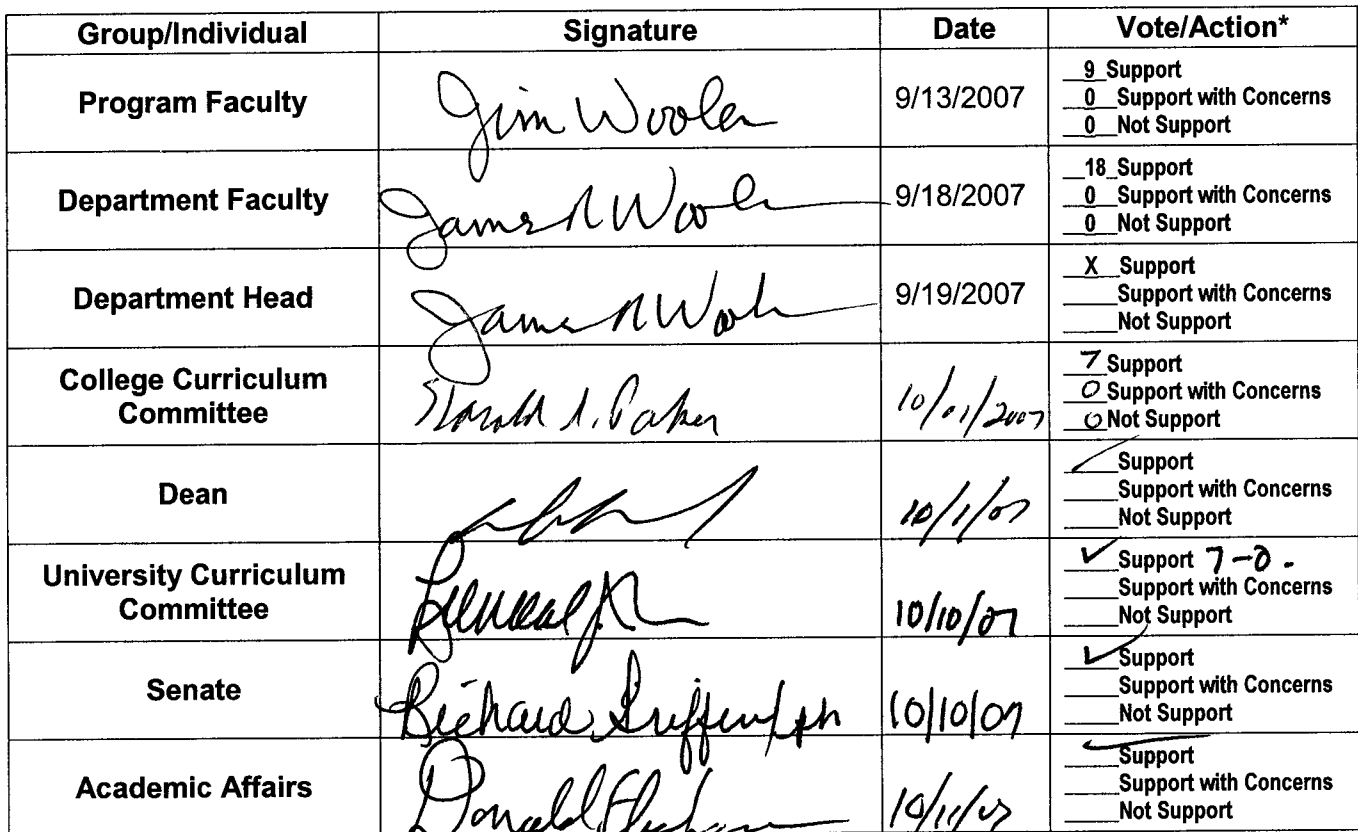 Group/Individual Signature Date Vote/Action*
Program Faculty Jim Woolen 9/13/2007 9 Support
0 Support with Concerns
0 Not Support
Department Faculty James R Woolen 9/18/2007 18 Support
0 Support with Concerns
0 Not Support
Department Head James R Woolen 9/19/2007 X Support
Support with Concerns
Not Support
College Curriculum
Committee 10/01/2007 7 Support
0 Support with Concerns
0 Not Support
Dean 10/1/07 Support
Support with Concerns
Not Support
University Curriculum
Committee 10/10/07 ✓ Support 7-0.
Support with Concerns
Not Support
Senate Richard Griffin/ph 10/10/07 ✓ Support
Support with Concerns
Not Support
Academic Affairs Donald 10/11/07 Support
Support with Concerns
Not Support